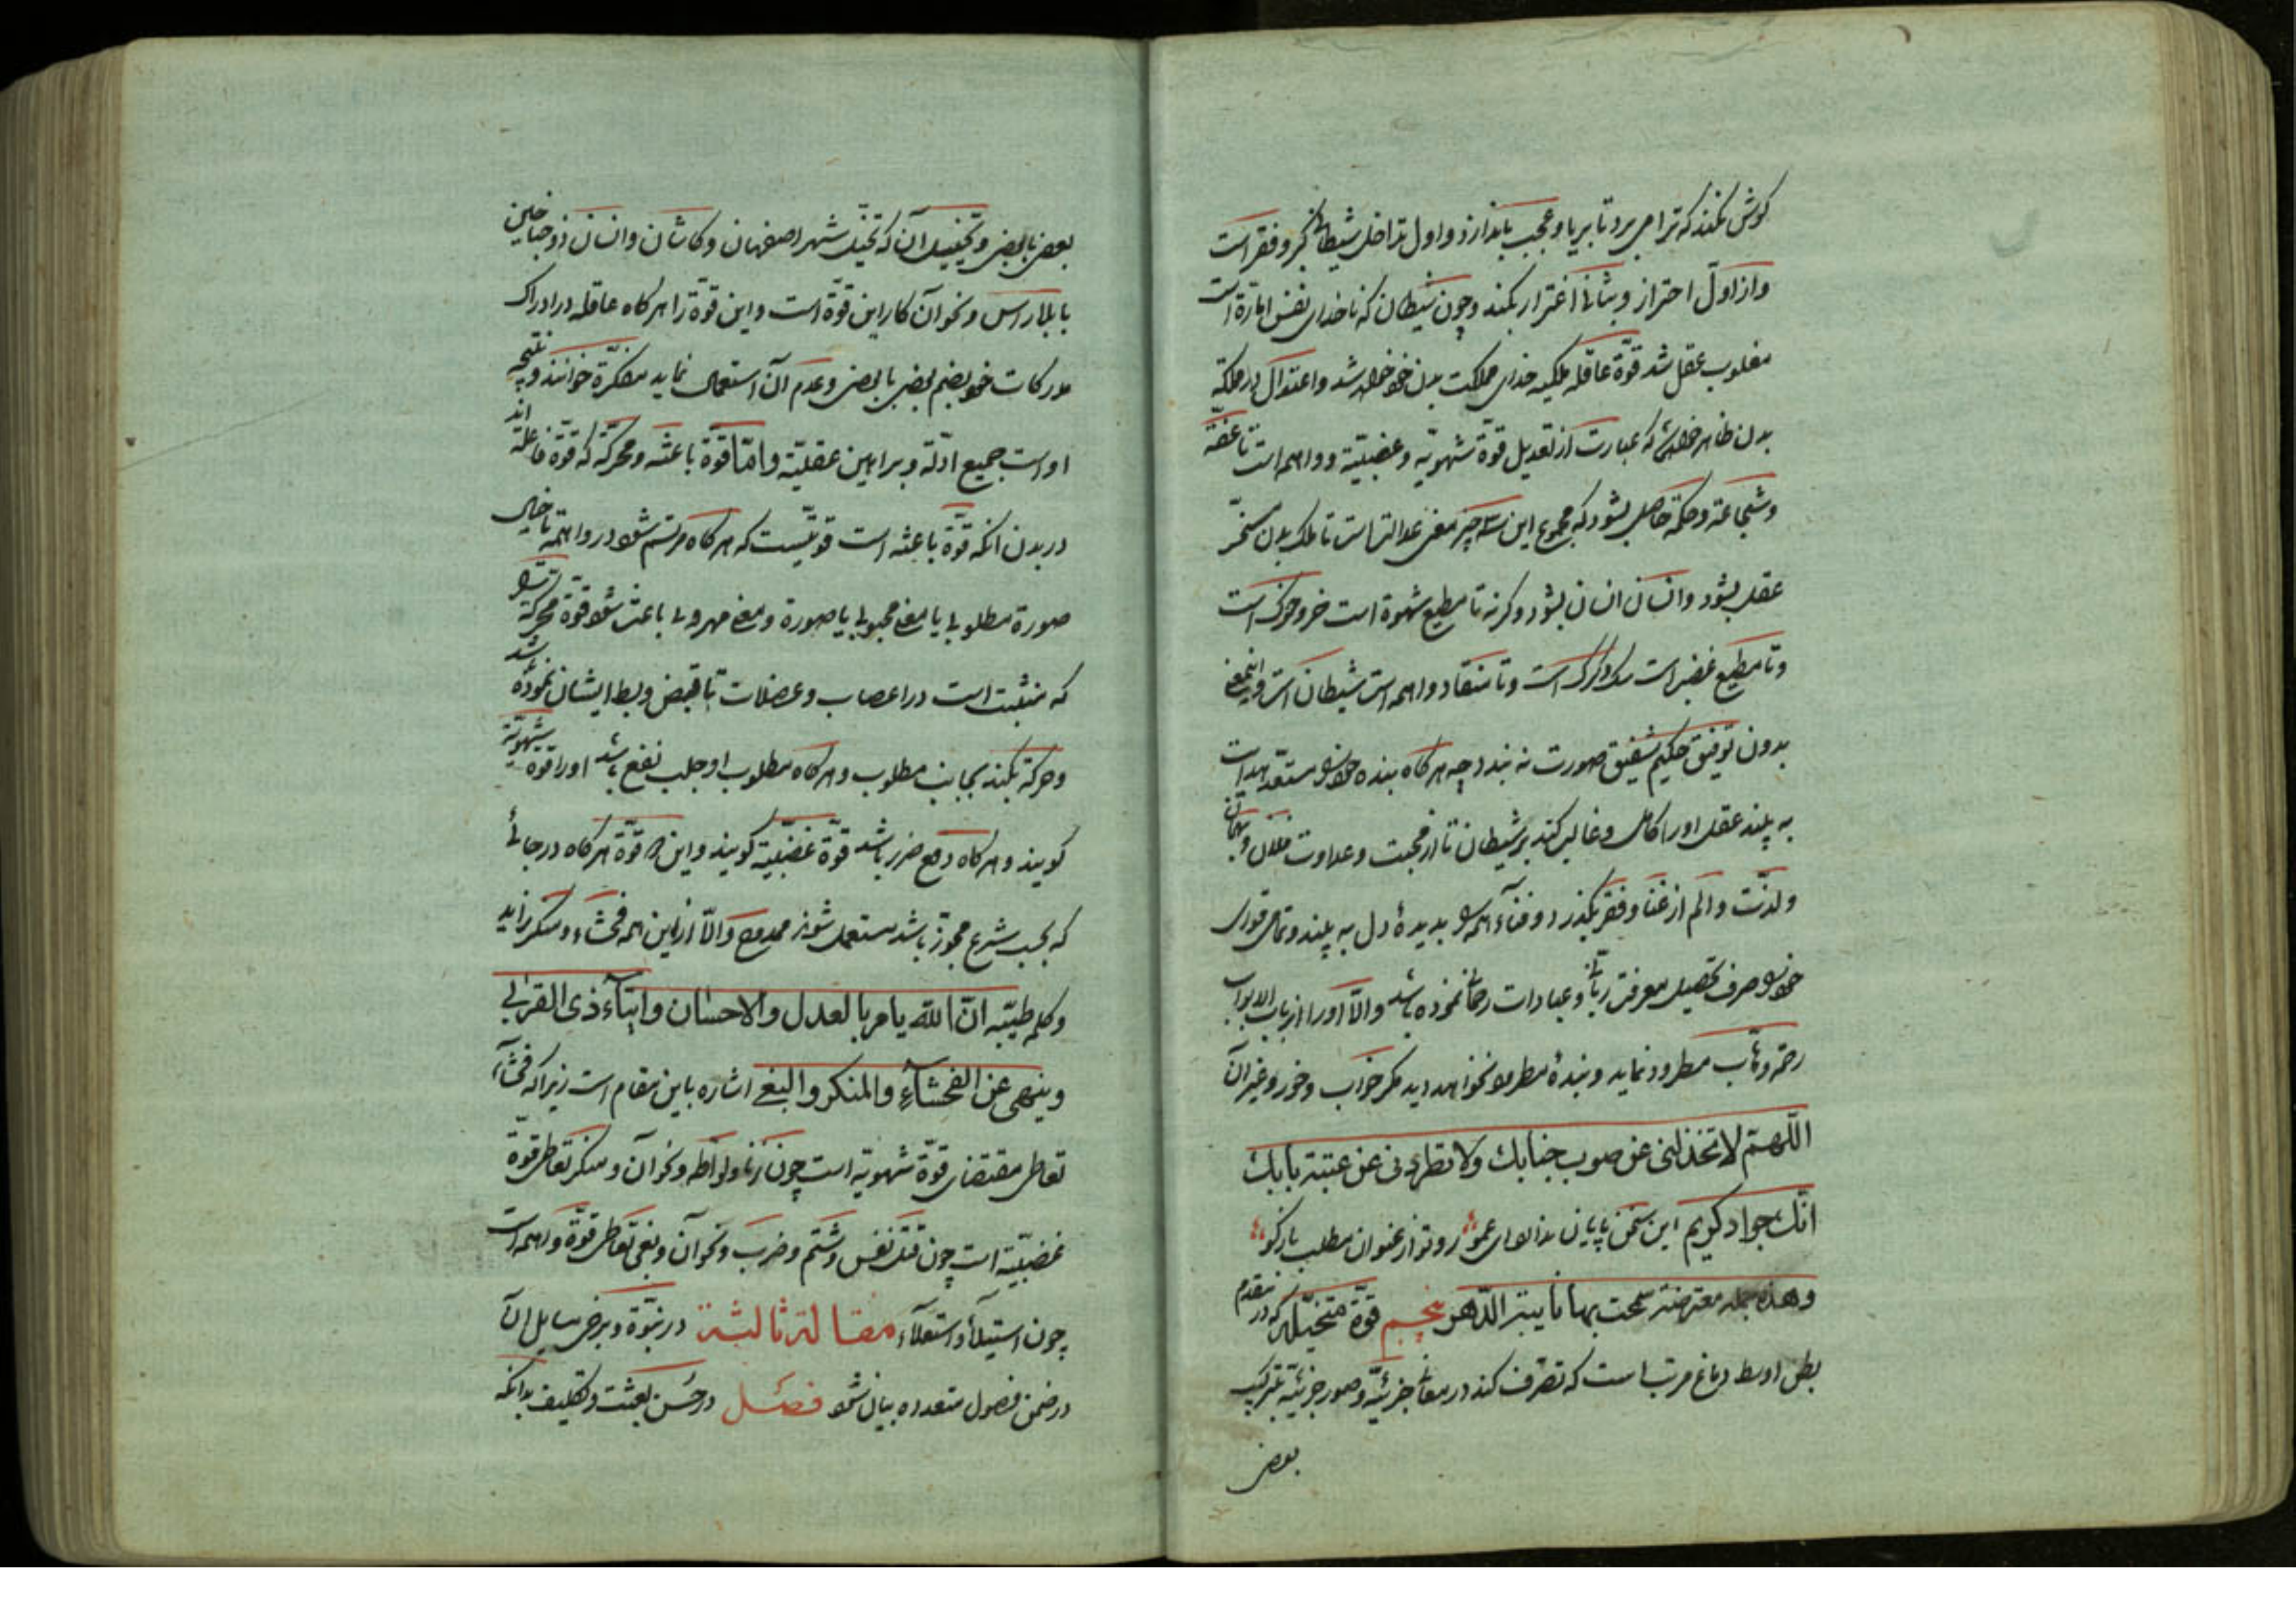 کوش نکند که ترا می برد تا بریا و عجب باندازد و اول مداخل شیطان کبر و فقر است
و از اول احتراز و بثانی اغترار نکند و چون شیطان که ناخدای نفس امّارة است
مغلوب عقل شد قوّة عاقله ملکیه خدای مملکت بدن خود خواهد شد و اعتدال در مملکة
بدن ظاهر خواهد شد که عبارت از تعدیل قوّة شهویّه و غضبیّه و واهمه است تا عفّة
و شجاعة و حکمة حاصل بشود که مجموع این سه چیز معنی عدالتست تا ملک بدن مسخّر
عقل بشود و انسان انسان بشود و کرنه تا مطیع شهوة است خر و خوک است
و تا مطیع غضبست سک و کرک است و تا منقاد واهمه است شیطان است و این معنی
بدون توفیق حکیم شفیق صورت نه بندد چه هر کاه بنده خود را مستعد هدایت
به بیند عقل او را کامل و غالب کند بر شیطان تا از محبت و عداوت فلان و بهمان
و لذّت و الم از غنا و فقر بکذرد و فنآء همه را بدیدهٔ دل به بیند و تمامی قوای
خود را صرف تحصیل معرفت ربّانی و عبادات رحمانی نموده باشد و الّا او را از باب الابواب
رحمت وهّاب مطرود نماید و بندهٔ مطرود نخواهد دید مکر خواب و خور و غیر آن
اللّهمّ لا تخذلنی عن صوب جنابک ولا تطردنی عن عتبة بابک
انّک جواد کریم این سخن پایان ندارد ای عمو رو تو از عنوان مطلب باز کو
وهذه جملة معترضة سمحت بها نایبة الدّهر پنجم قوّة متخیّله که در مقدم
بطن اوسط دماغ مرتب است که تصرّف کند در معانی جزئیّه و صور جزئیّه بترکیب
بعضی
بعضی با بعضی و تخییل آن که تخیّل شهر اصفهان و کاشان و انسان ذو جناحین
یا بلا رأس و نحو آن کار این قوّة است و این قوّة را هر کاه عاقله در ادراک
مدرکات خود بضم بعضی با بعضی و عدم آن استعمال نماید مفکّرة خوانند و نتیجه
او است جمیع ادلّه و براهین عقلیّه و امّا قوّة باعثه و محرّکه که قوّة فاعله اند
در بدن انکه قوّة باعثه است قوّتیست که هر کاه مرتسم شود در واهمه یا خیال
صورة مطلوبی یا معنی محبوبی یا صورة و معنی مهروبی باعث شود قوّة محرّکه را
که منبثّ است در اعصاب و عضلات تا قبض و بسط ایشان نموده شد
و حرکة بکند بجانب مطلوب و هر کاه مطلوب او جلب نفع باشد او را قوّة شهویّه
کویند و هر کاه دفع ضرر باشد قوّة غضبیّه کویند و این دو قوّة هر کاه در جائی
که بحسب شرع مجوّز باشد مستعمل شوند ممدوح و الّا از این همه فحشاء و منکر زاید
و کلمه طیّبه انّ الله یامر بالعدل والاحسان وایتآء ذی القربی
وینهی عن الفحشآء والمنکر والبغی اشاره باین مقام است زیرا که فحشآء
تعاطی مقتضای قوّة شهویّه است چون زنا و لواطه و نحو آن و منکر تعاطی قوّة
غضبیّه است چون قتل نفس و شتم و ضرب و نحو آن و بغی تعاطی قوّة واهمه است
چون استیلآء و استعلآء مقالة ثالثة در نبوّة و برخی مسایل آن
در ضمن فصول متعدده بیان شود فصل در حُسن بعثت و تکلیف بدانکه